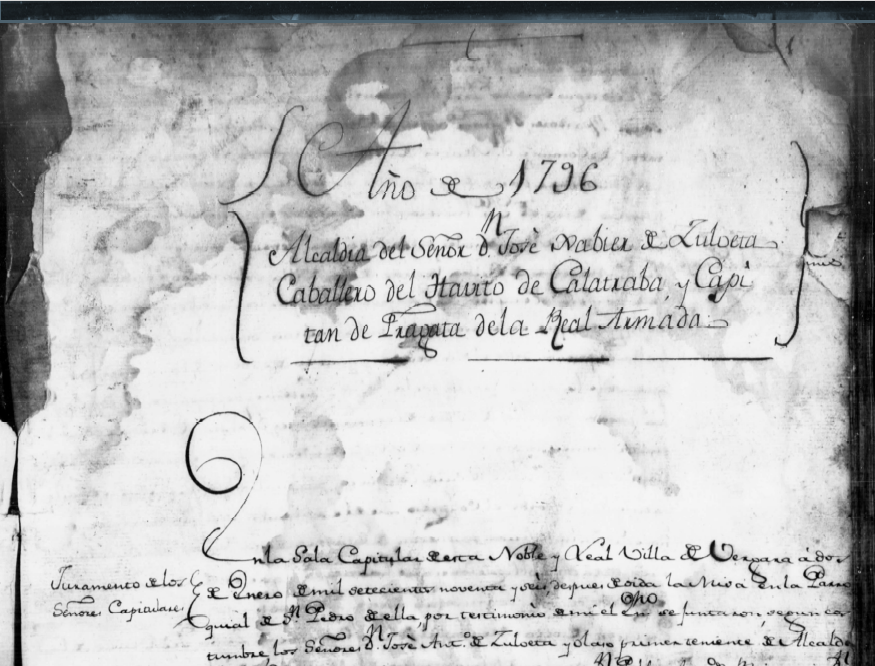 Año de 1796
Alcaldia del Señor d.n Josè Xabier de Zuloeta
Caballero del Havito de Calatraba, y Capi
tan de Fragata dela Real Armada
Enla Sala Capitular de esta Noble y Leal Villa de Vergara à dos
Juramento de los
Señores Capitulares
de Enero de mil setecientos noventa y seis despues de oida la Misa en la Parro
quial de S.n Pedro de ella, por testimonio de mi el esno se juntaron segun cos
tumbre los Señores d.n Josè Ant.o de Zuloeta primer teniente de Alcalde